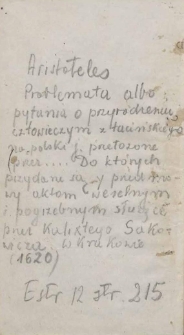 Aristoteles
Problemata albo
pytania o przyrodzeniu
człowieczym z łacińskiego
na polski j. przełożone
przez .... Do których
przydane są y przedmo-
wy aktom weselnym
i pogrzebnym służące
przez Kalikstego Sako-
wicza. w Krakowie
(1620)
Estr 12 str. 215